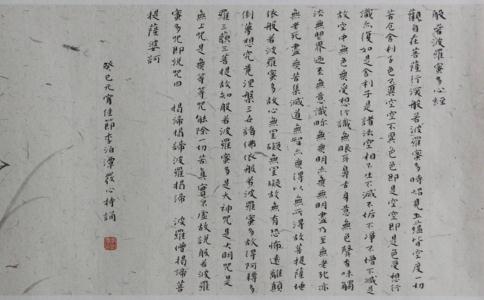 般若波羅蜜多心經
觀自在菩薩行深般若波羅蜜多時照見五蘊皆空度一切
苦厄舍利子色不異空空不異色色即是空空即是色受想行
識亦復如是舍利子是諸法空相不生不滅不垢不淨不增不減是
故空中無色無受想行識無眼耳鼻舌身意無色聲香味觸
法無眼界乃至無意識界無無明亦無無明盡乃至無老死亦
無老死盡無苦集滅道無智亦無得以無所得故菩提薩埵
依般若波羅蜜多故心無罣礙無罣礙故無有恐怖遠離顛
倒夢想究竟涅槃三世諸佛依般若波羅蜜多故得阿耨多
羅三藐三菩提故知般若波羅蜜多是大神咒是大明咒是
無上咒是無等等咒能除一切苦真實不虛故說般若波羅
蜜多咒即說咒曰 揭諦揭諦波羅揭諦 波羅僧揭諦菩
提薩婆訶
癸巳元宵佳節李泊心持誦